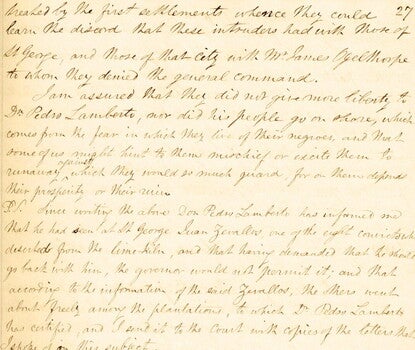 treated by the first settlements whence they could 27
learn the discord that these intruders had with those of
St George, and those of that City with Mr James Oglethorpe
to whom they denied the general command.
I am assured that they did not give more liberty to
Dn Pedro Lamberto, nor did his people go on shore, which
comes from the fear in which they live of their negroes, and that
some of us might hint to them mischief or excite them to
runaway against which they would so much guard, for on them depends
their prosperity or their ruin
P.S. Since writing the above Don Pedro Lamberto has informed me
that he had seen at St George Juan Zevallos one of the eight convicts who
deserted from the lime-kiln, and that having demanded that he should
go back with him, the governor would not permit it; and that
according to the information of the said Zevallos, the others went
about freely among the plantations, to which Dn Pedro Lamberto
has certified, and I send it to the Court with copies of the letters that
I spoke of on this subject.